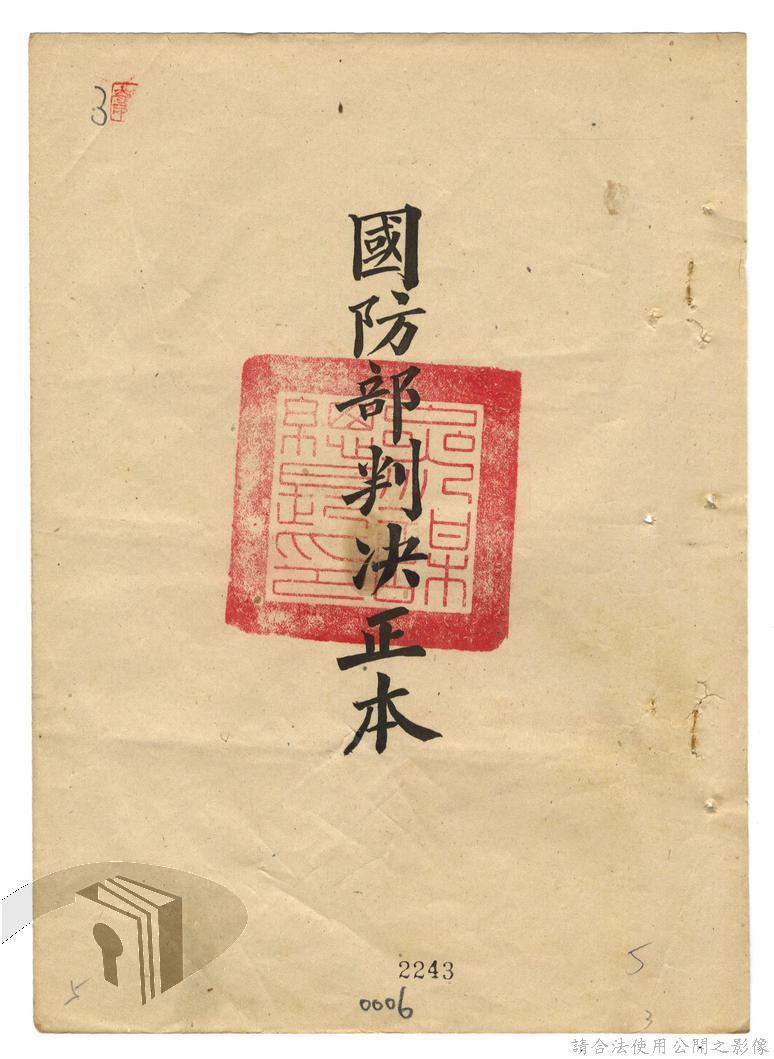 3
國防部判決正本
2243
0006
5
5
3
請合法使用公開之影像